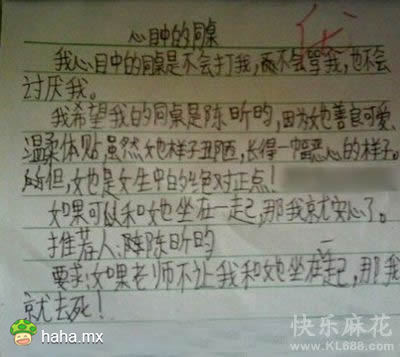 心目中的同桌
优
我心目中的同桌是不会打我,而不会骂我,也不会
讨厌我。
我希望我的同桌是陈昕昀,因为她善良可爱、
温柔体贴,虽然她样子丑陋,长得一幅恶心的样子。
但,她也是女生中的绝对正点!
如果可以和她坐在一起,那我就安心了。
推荐人:陈昕昀
要求:如果老师不让我和她坐在一起,那我
就去死!
haha.mx
快乐麻花
www.KL688.com